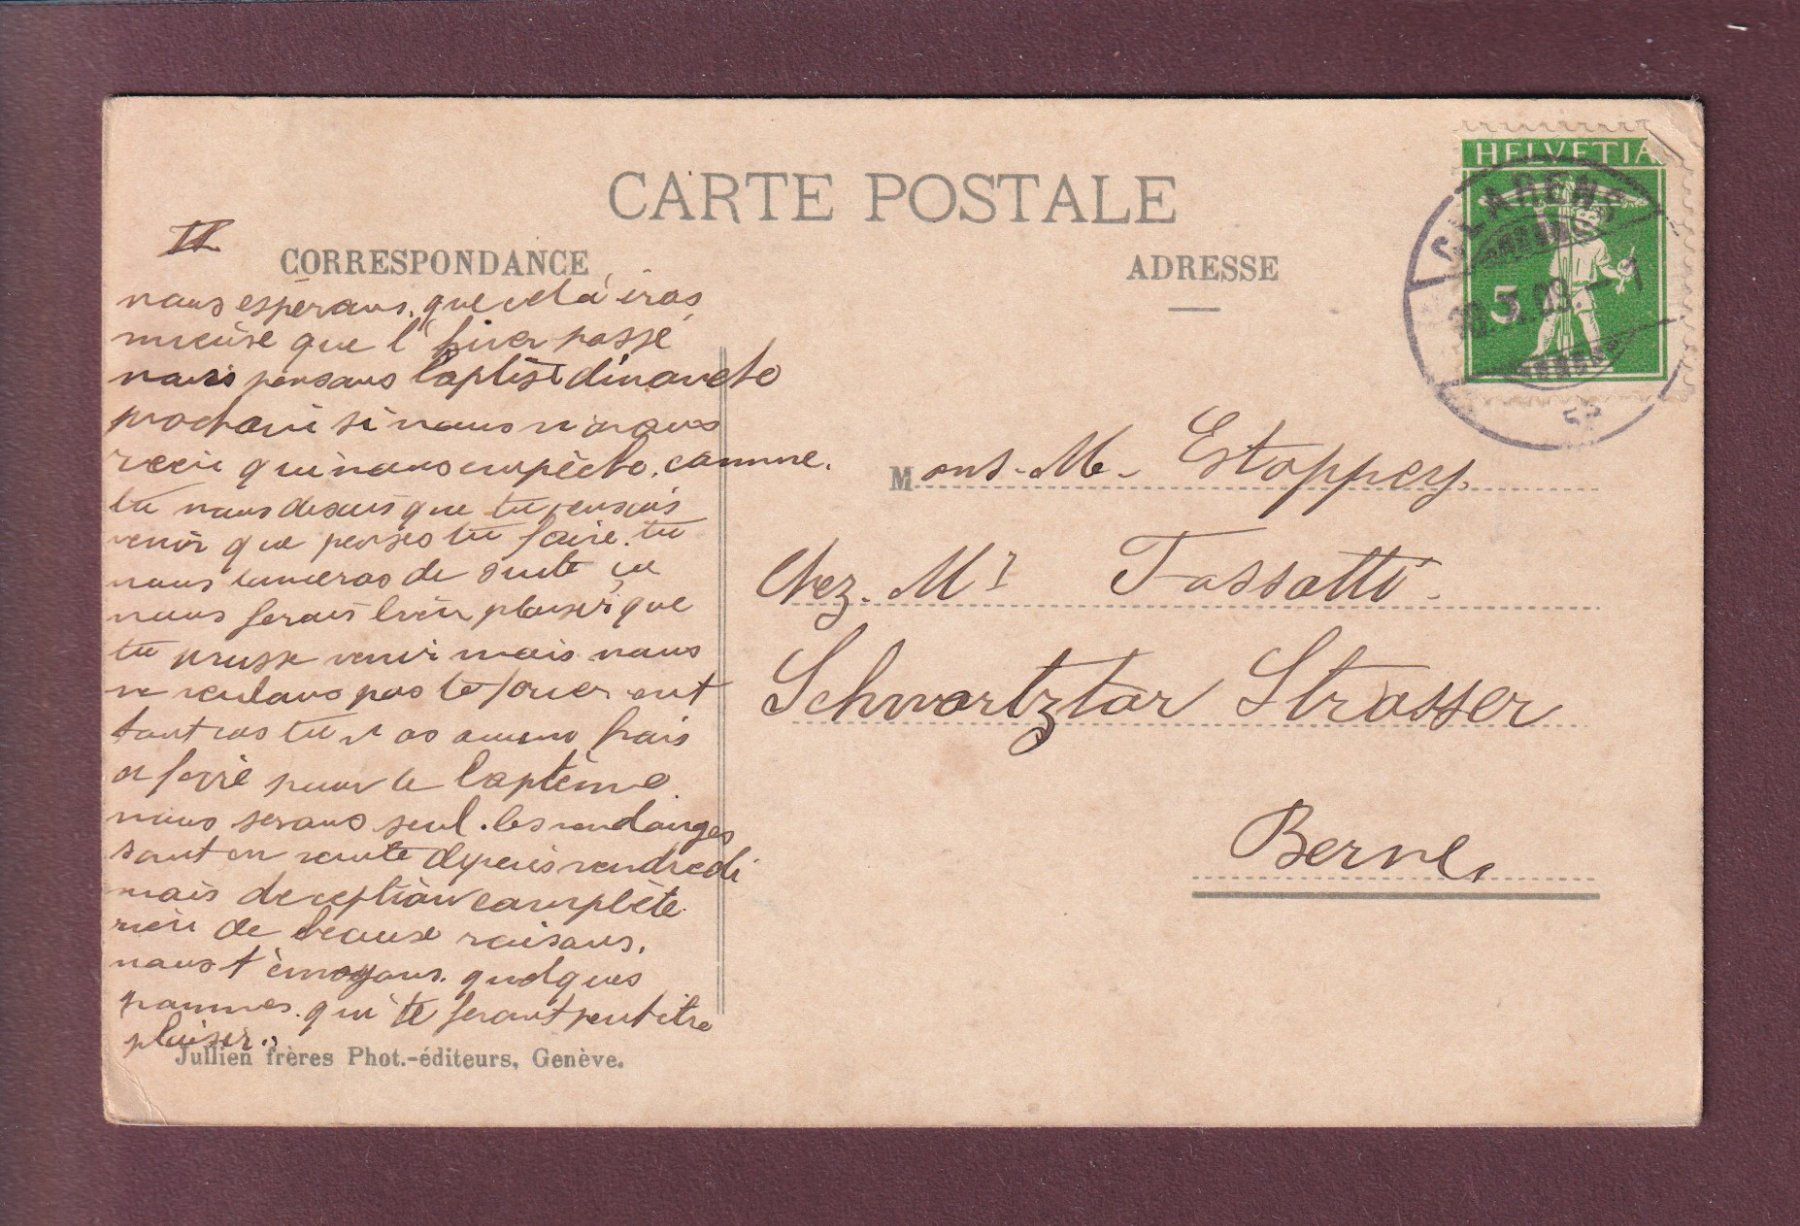 CARTE POSTALE
II
CORRESPONDANCE
ADRESSE
HELVETIA
CLARENS
5
nous espérons, que cela iras
mieuse que l'hiver passé,
nous pensons baptise dimanche
prochani si nous n'avons
rien qui nous empèche. comme.
tu nous disais que tu pensais
venir que penses tu faire. tu
nous de suite ça
nous ferais bien plaisir que
tu pusse venir mais nous
ne voulons pas te forcer ent
tout cas tu n as aucun frais
a faire pour le baptème
nous serons seul. les vendanges
sont en route depuis vendredi
mais deception complète
rien de beause raisons.
nous t'envoyons. quelques
pommes. qui te feront peut itre
plaisir.
Mons. M. Estoppey.
Chez. Mr Fassatti.
Schwartztar Strasser
Berne,
Jullien frères Phot.-éditeurs, Genève.